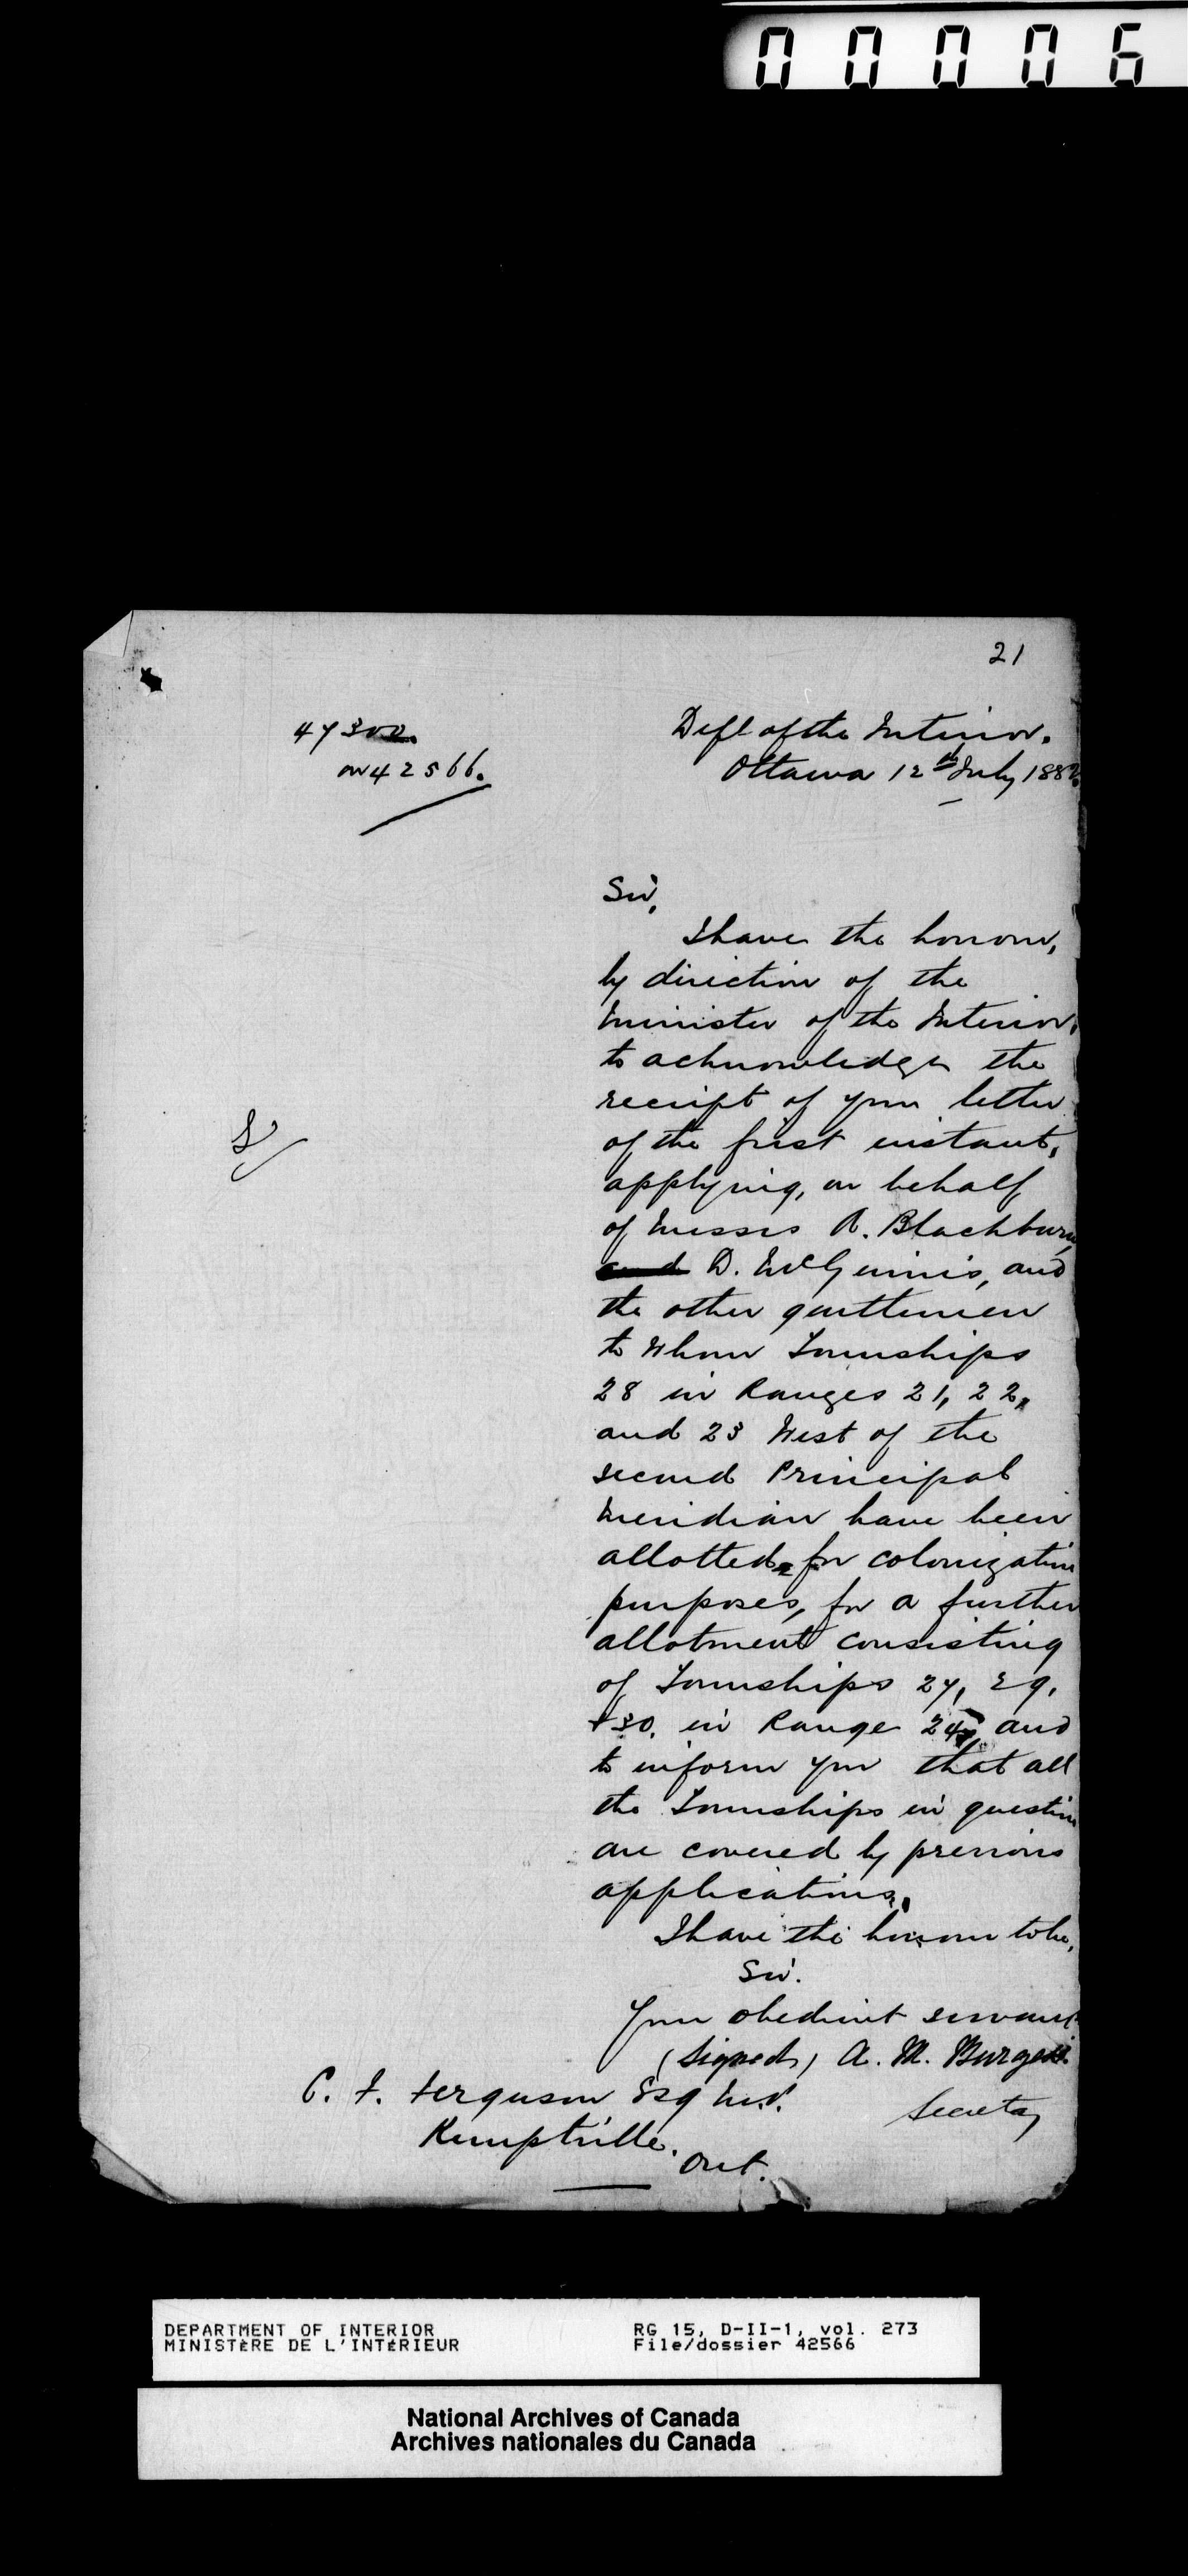 00006
21
47300.
on 42566.
Dept of the Interior.
Ottawa 12th July 1882
Sir,
I have the honour,
by direction of the
Minister of the Interior,
to acknowledge the
receipt of your letter
of the first instant,
applying, on behalf
of Messrs A. Blackburn,
and D. McGuinnis, and
the other gentlemen
to whom Townships
28 in Ranges 21, 22,
and 23 West of the
second Principal
Meridian have been
allotted for colonization
purposes, for a further
allotment consisting
of Townships 27, 29,
+ 30. in Range 24, and
to inform you that all
the Townships in question
are covered by previous
applications.
I have the honour to be,
Sir.
Your obedient servant
(Signed) A. M. Burgess.
Secretary
C. F. Ferguson Esq M.P.
Kemptville.
Ont.
DEPARTMENT OF INTERIOR
MINISTÈRE DE L'INTÉRIEUR
RG 15, D-II-1, vol. 273
File/dossier 42566
National Archives of Canada
Archives nationales du Canada